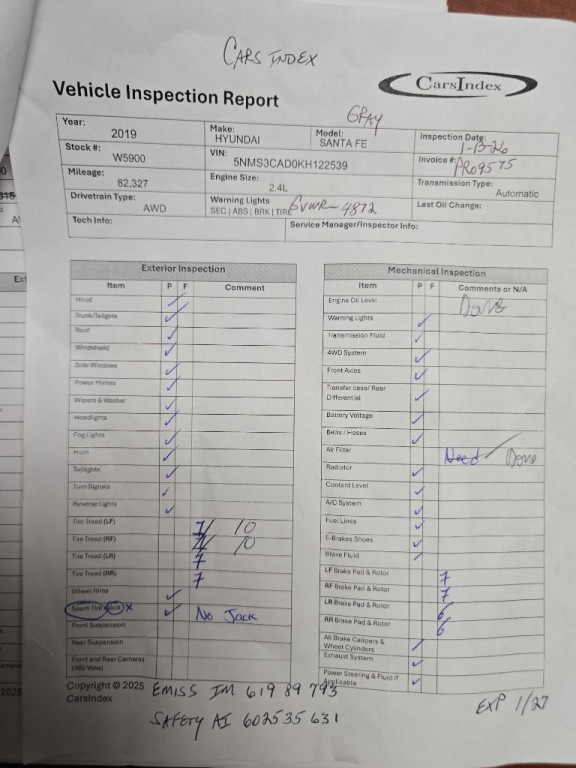 CARS INDEX
CarsIndex
Vehicle Inspection Report
GRAY
Year: 2019 Make: HYUNDAI Model: SANTA FE Inspection Date: 1-13-26
Stock #: W5900 VIN: 5NMS3CAD0KH122539 Invoice #: PRO9575
Mileage: 82,327 Engine Size: 2.4L Transmission Type: Automatic
Drivetrain Type: AWD Warning Lights SEC | ABS | BRK | TIRE GVWR-4872 Last Oil Change:
Tech Info: Service Manager/Inspector Info:
Exterior Inspection
Item P F Comment
Hood ✓
Trunk/Tailgate ✓
Roof ✓
Windshield ✓
Side Windows ✓
Power Mirrors ✓
Wipers & Washer ✓
Headlights ✓
Fog Lights ✓
Horn ✓
Taillights ✓
Turn Signals ✓
Reverse Lights ✓
Tire Tread (LF) 7 10
Tire Tread (RF) 10
Tire Tread (LR) 7
Tire Tread (RR) 7
Wheel Rims ✓
Spare Tire Jack X ✓ No Jack
Front Suspension
Rear Suspension
Front and Rear Cameras
(360 View)
Mechanical Inspection
Item P F Comments or N/A
Engine Oil Level Done
Warning Lights ✓
Transmission Fluid ✓
4WD System ✓
Front Axles ✓
Transfer case/ Rear
Differential ✓
Battery Voltage ✓
Belts / Hoses ✓
Air Filter Need ✓ Done
Radiator ✓
Coolant Level ✓
A/C System ✓
Fuel Lines ✓
E-Brakes Shoes ✓
Brake Fluid ✓
LF Brake Pad & Rotor 7
RF Brake Pad & Rotor 7
LR Brake Pad & Rotor 6
RR Brake Pad & Rotor 6
All Brake Calipers &
Wheel Cylinders ✓
Exhaust System ✓
Power Steering & Fluid if
Applicable ✓
Copyright © 2025
CarsIndex
EMISS IM 619 89 793
SAFETY AI 602535631
EXP 1/27
2025